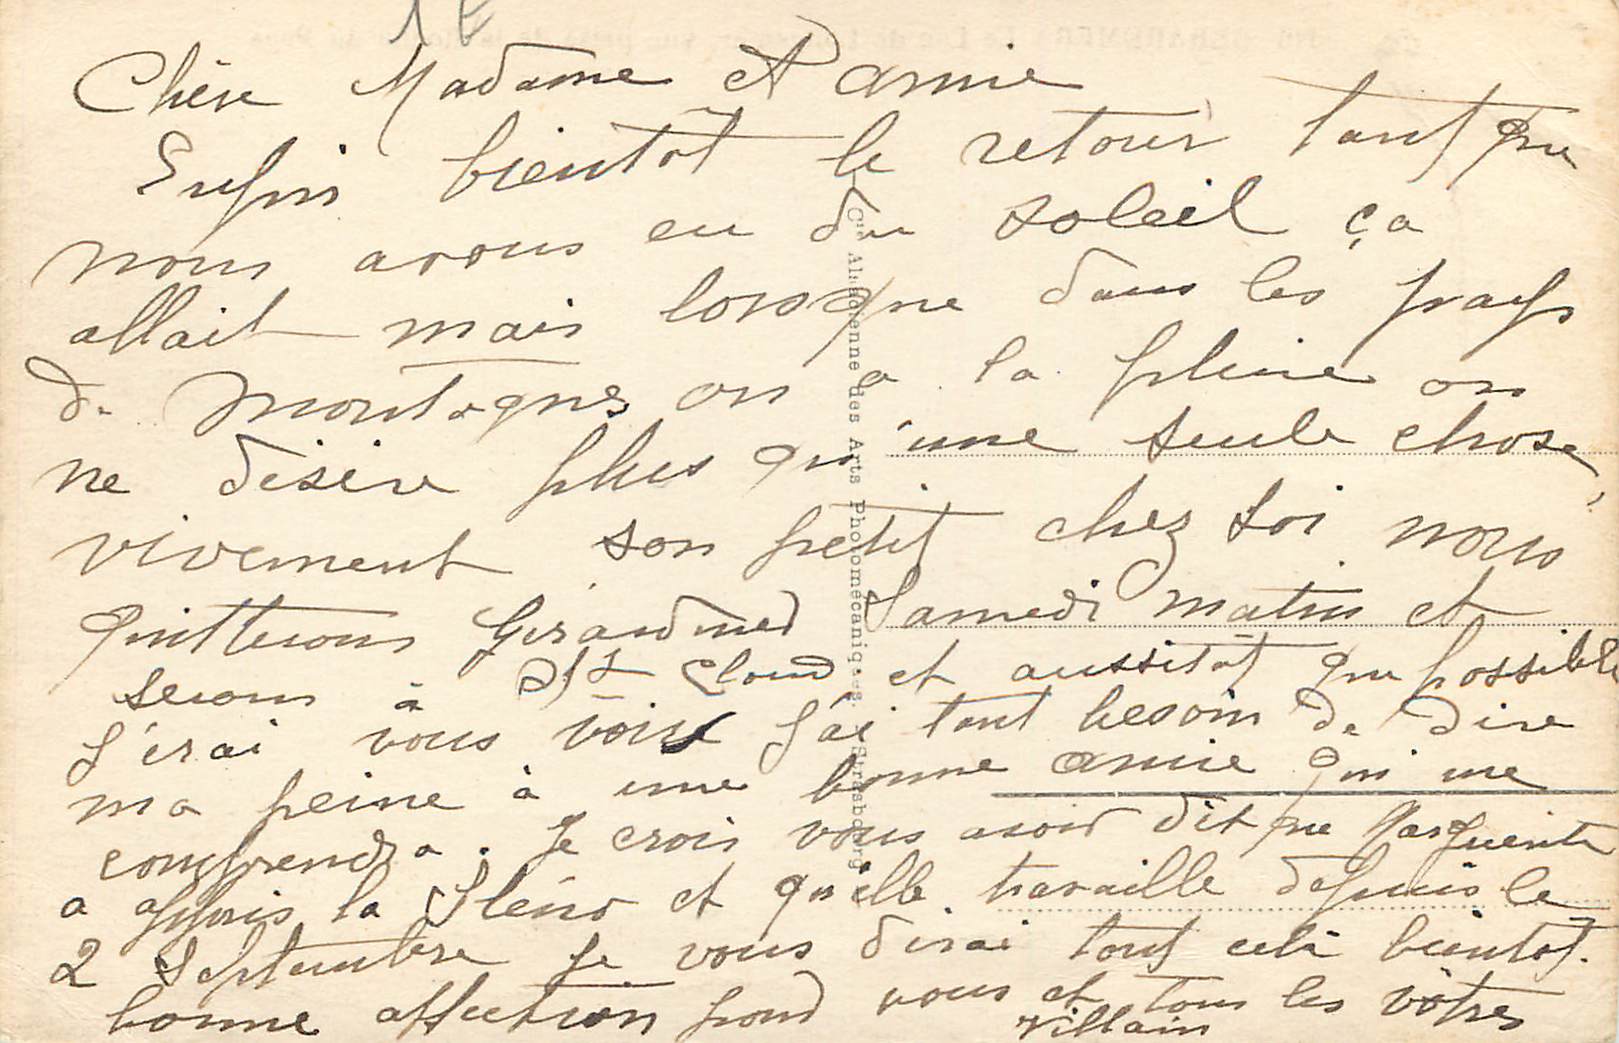 Chère Madame et amie
Enfin bientôt le retour tant que
nous avons eu du soleil ça
allait mais lorsque dans les pays
de montagnes on a la pluie on
ne désire plus qu'une seule chose,
vivement son petit chez soi nous
quitterons Gérardmer Samedi matin et
serons à St Cloud et aussitôt que possible
j'irai vous voir j'ai tant besoin de dire
ma peine à une bonne amie qui me
comprendra. Je crois vous avoir dit que Marguerite
a appris la Sténo et qu'elle travaille depuis le
2 Septembre je vous dirai tout celà bientôt.
bonne affection pour vous et tous les vôtres
Villain
Cie Alsacienne des Arts Photomécaniques, Strasbourg